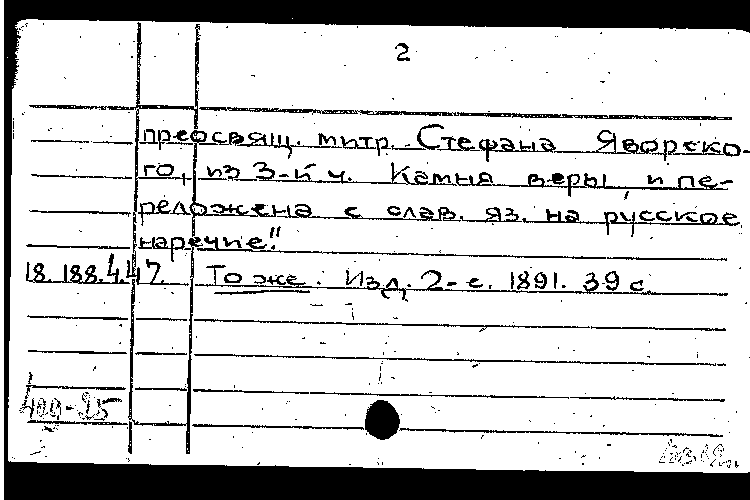 2
преосвящ. митр. Стефана Яворско-
го, из 3-й ч. Камня веры, и пе-
реложена с слав. яз. на русское
наречие."
18.188.4.47. То же. Изд. 2-е. 1891. 39 с.
409-95